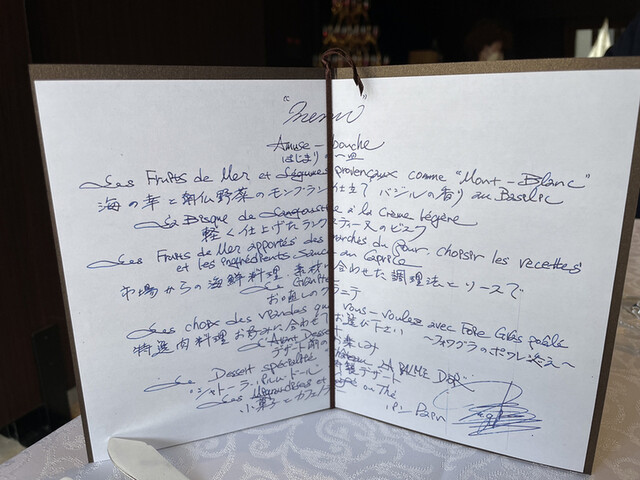 "Menu"
Amuse-bouche
はじまりの一皿
Les Fruits de Mer et Légumes provençaux comme "Mont-Blanc"
海の幸と南仏野菜のモンブラン仕立て バジルの香り au Basilic
La Bisque de Langoustine à la Crème légère
軽く仕上げたラングスティーヌのビスク
Les Fruits de Mer apportés des marchés du jour, choisir les recettes
et les ingrédients, sauce au Caprice
市場からの海鮮料理、素材に合わせた調理法とソースで
Le Granité
お口直しのグラニテ
Les choix des viandes que vous-voulez avec Foie Gras poêlé
特選肉料理 お好みに合わせてお選び下さい 〜フォワグラのポワレ添え〜
L'Avant Dessert
デザート前のお楽しみ
Le Dessert spécialité Château PALME D'OR
シャトーラ・パルムドール 特製デザート
Les Mignardises et Café ou Thé
小菓子とカフェ
パン Pain